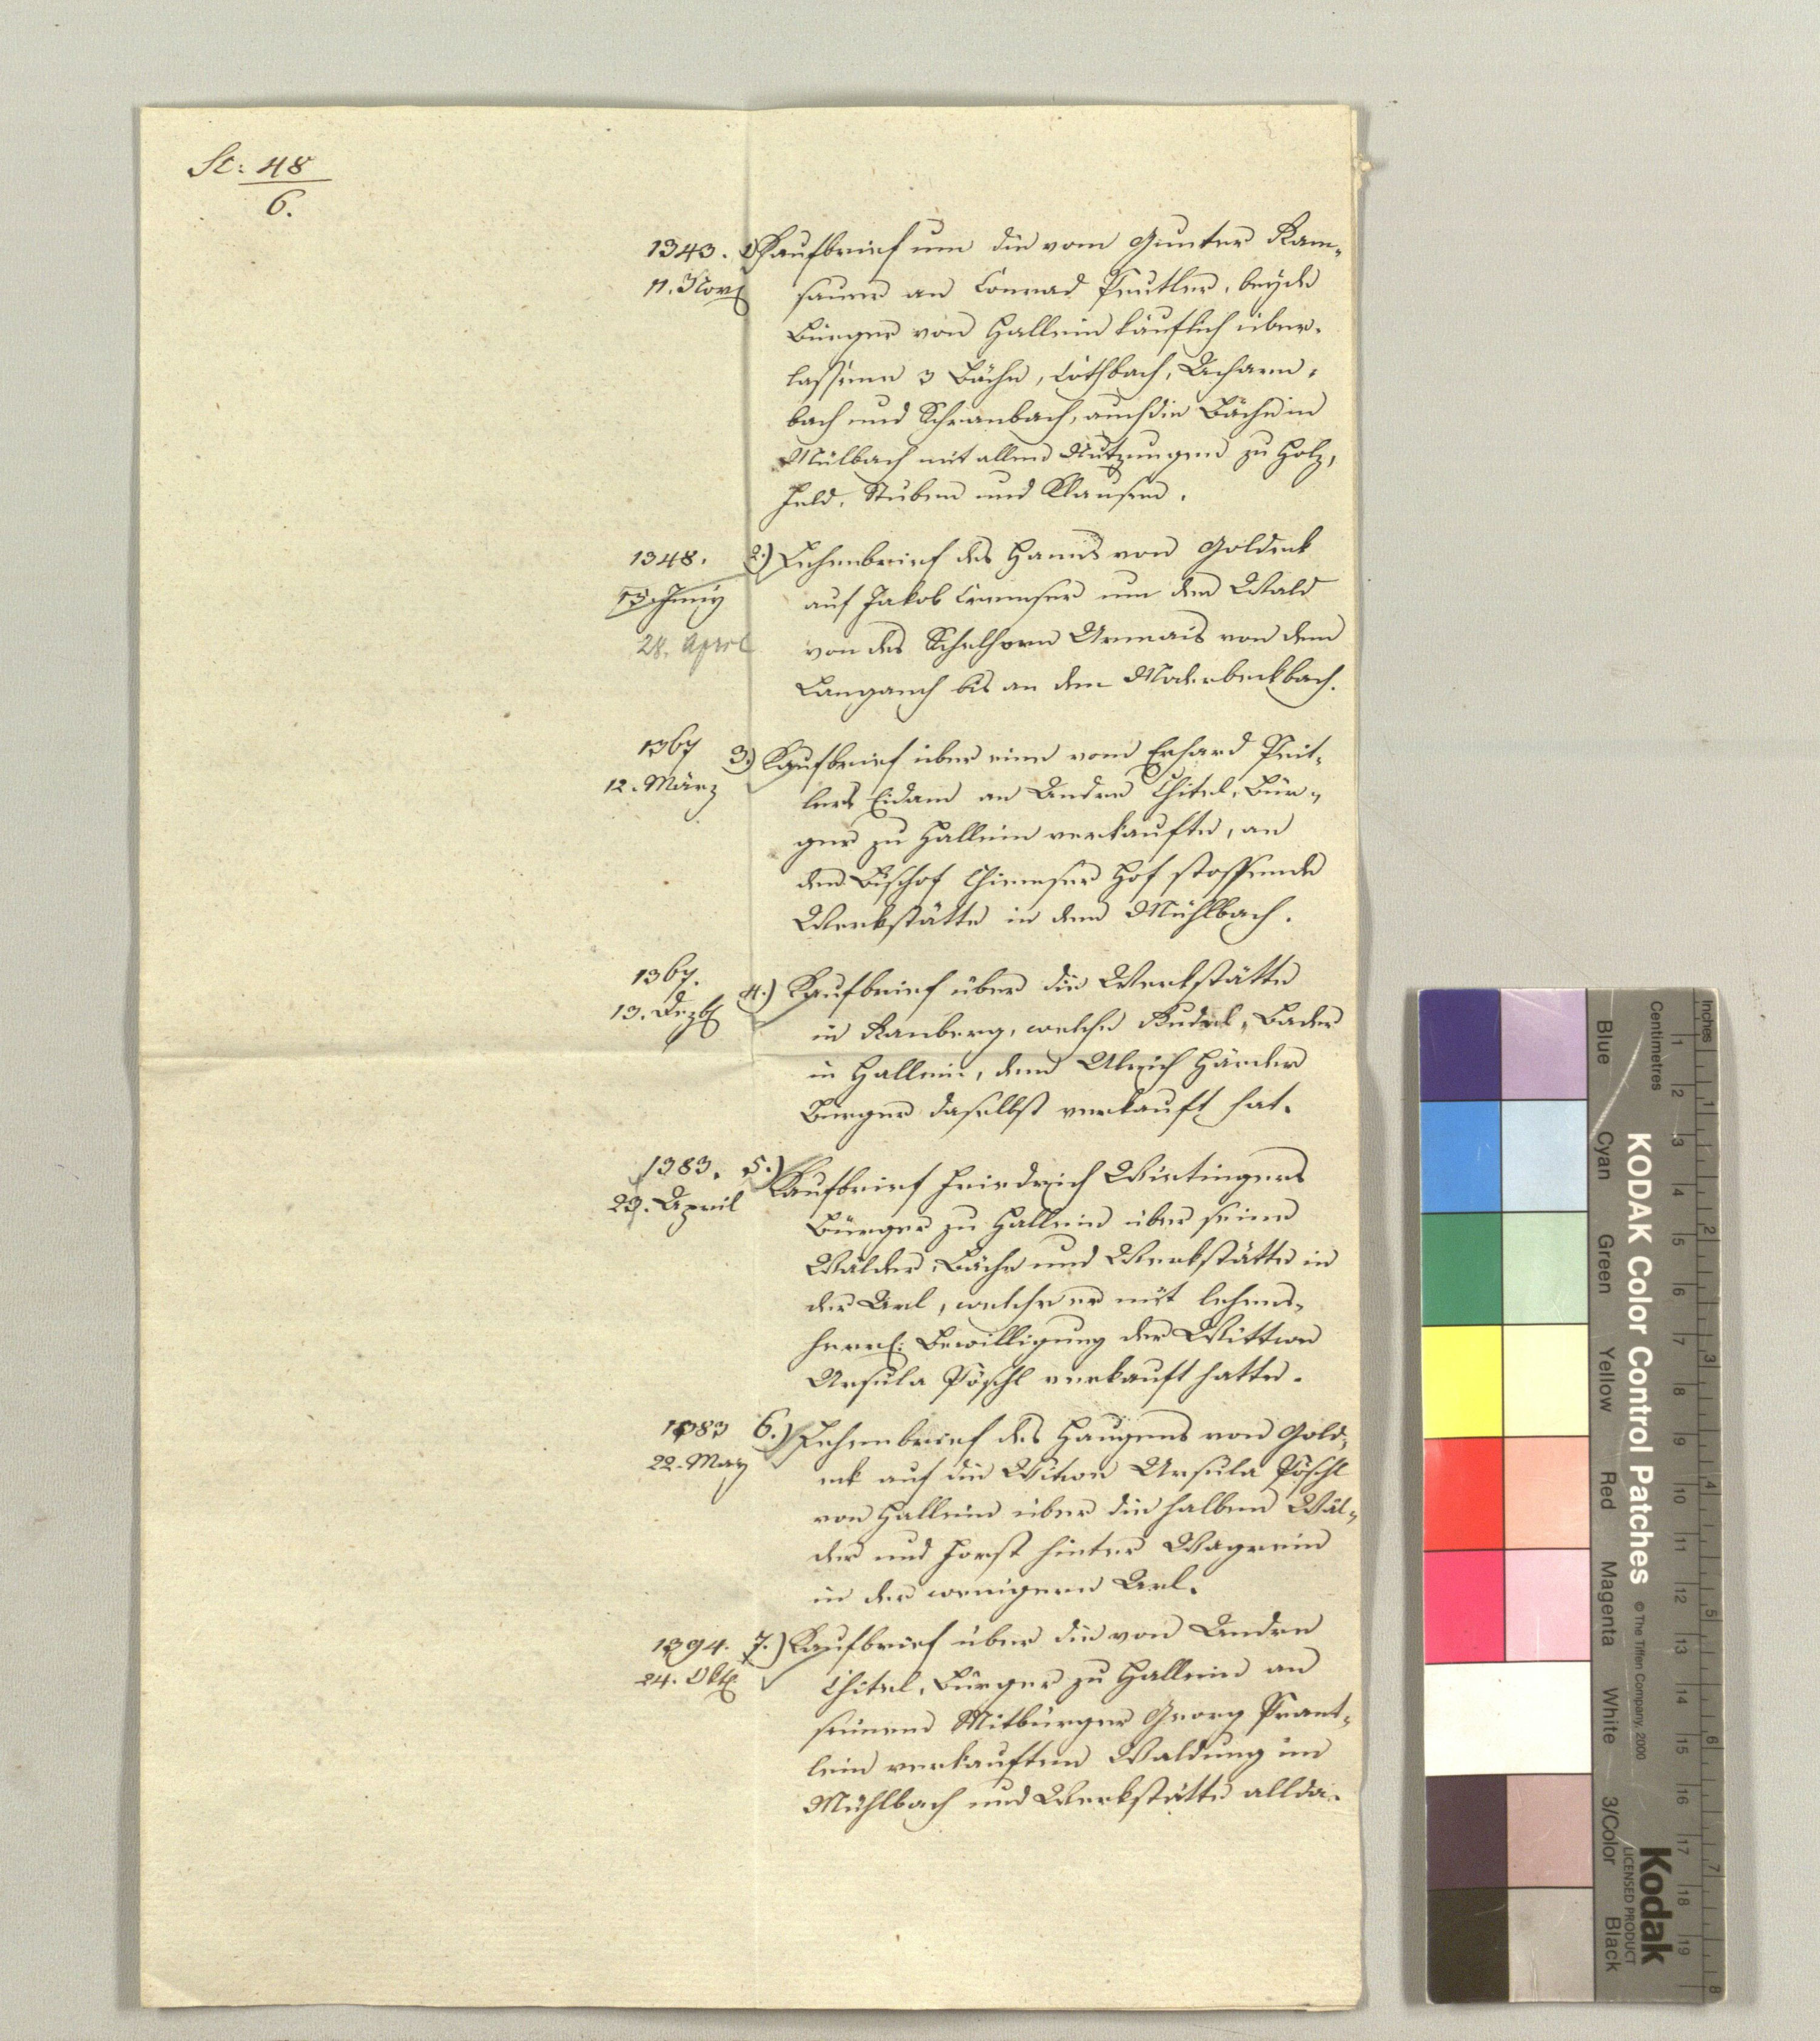 St: 48
6.
1343. 1) Kaufbrief um die vom Gunter Ram„
11. Nov. sauer an Conrad Peutler, beyde
Bürger von Hallein käuflich über„
lassenen 3 Bäche, Löthbach, Acharn„
bach und Schranbach, auch die Bäche in
Mülbach mit allen Nutzungen zu Holz,
Feld, Stuben und Klausen.
1348. 2.) Lehenbrief des Hanns von Goldeck
13. Juny auf Jakob um den Wald
28. April von des Schelhorn von dem
Langaich bis an den Moderbeckbach.
1367 3.) Kaufbrief über eine vom Erhard Peit„
12. März lers Eidam an Andre Chitel, Bür„
ger zu Hallein verkaufte, an
den Bischof Chiemseer Hof stossende
Werkstätte in dem Mühlbach.
1367. 4.) Kaufbrief über die Werkstätte
13. Dezb. in Ranberg, welche Rudel, Bader
in Hallein, dem Ulrich Härder
Bürger daselbst verkauft hat.
1383. 5.) Kaufbrief Friedrich Wirtingers
23. April Bürger zu Hallein über seine
Wälder, Bäche und Werkstätte in
der Arl, welche er mit lehens„
herrl: Bewilligung der Wittwe
Ursula Pöschl verkauft hatte.
1383 6.) Lehenbrief des Haugens von Gold„
22. May eck auf die Witwe Ursula Pöschl
von Hallein über die halben Wäl„
der und Forst hinter Wagrein
in der wenigern Arl.
1394. 7.) Kaufbrief über die von Andre
24. Okt. Chitel, Bürger zu Hallein an
seinen Mitbürger Georg Prant„
lein verkauften Waldung im
Mühlbach und Werkstätte allda.
KODAK Color Control Patches © The Tiffen Company, 2000
Kodak
LICENSED PRODUCT
Inches 1 2 3 4 5 6 7 8
Centimetres 1 2 3 4 5 6 7 8 9 10 11 12 13 14 15 16 17 18 19
Blue Cyan Green Yellow Red Magenta White 3/Color Black